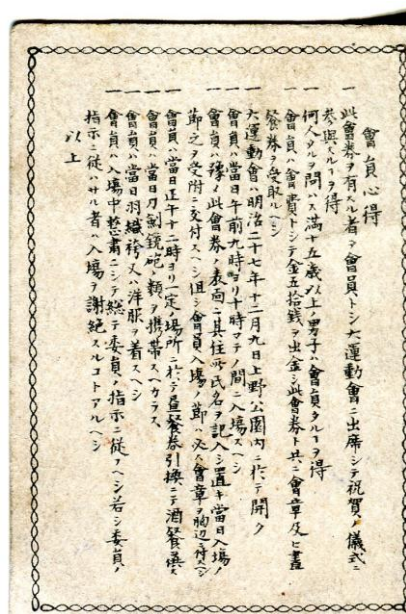 會員心得
一 此會券ヲ有スル者ヲ會員トシ大運動會ニ出席シテ祝賀ノ儀式ニ
參與スルヿヲ得
一 何人タルヲ問ハス滿十五歳以上ノ男子ハ會員タルヿヲ得
一 會員ハ會費トシテ金五拾錢ヲ出金シ此會券ト共ニ會章及ヒ晝
餐券ヲ受取ルヘシ
一 大運動會ハ明治二十七年十二月九日上野公園內ニ於テ開ク
一 會員ハ當日午前九時ヨリ十時マテノ間ニ入場スヘシ
一 會員ハ豫メ此會券ノ表面ニ其住所氏名ヲ記入シ置キ當日入場ノ
節之ヲ受附ニ交付スヘシ但シ會員入場ノ節ハ必ス會章ヲ胸辺ニ付スヘシ
一 會員ハ當日正午十二時ヨリ一定ノ場所ニ於テ晝餐券引換ニテ酒餐ヲ
一 會員ハ當日刀劍銃砲ノ類ヲ携帶スヘカラス
一 會員ハ當日羽織袴又ハ洋服ヲ着スヘシ
一 會員ハ入場中整肅ニシテ總テ委員ノ指示ニ從フヘシ若シ委員ノ
指示ニ從ハサル者ハ入場ヲ謝絕スルコトアルヘシ
以上